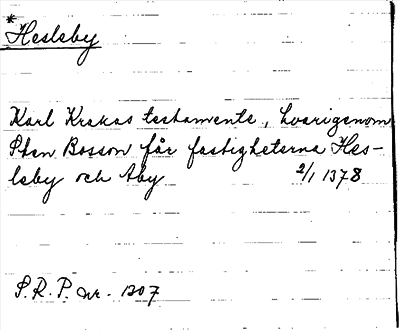 * Hesleby
Karl Krakas testamente, hvarigenom
Sten Bosson får fastigheterna Hes-
leby och Åby 2/1 1378
S.R.P. nr. 1307